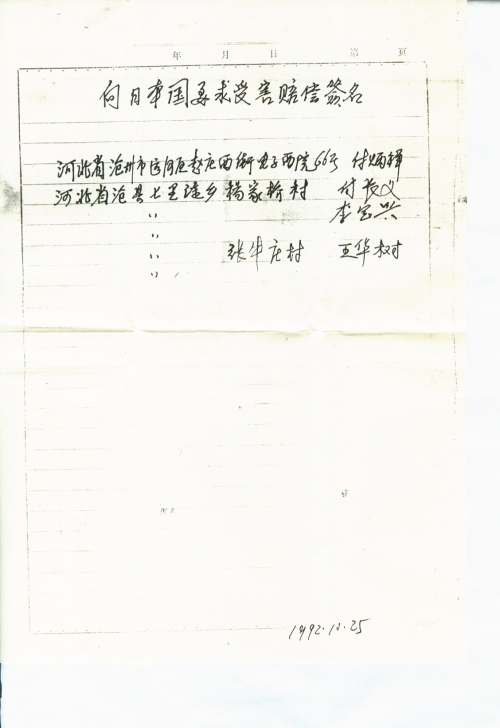 年 月 日 第 页
向日本国要求受害赔偿签名
河北省沧州市运河区李庄西街电子西院66号 付炳锋
河北省沧县七里淀乡杨家桥村 付长义
〃 李宝兴
〃
〃 张牛庄村 王华树
〃
1992.10.25